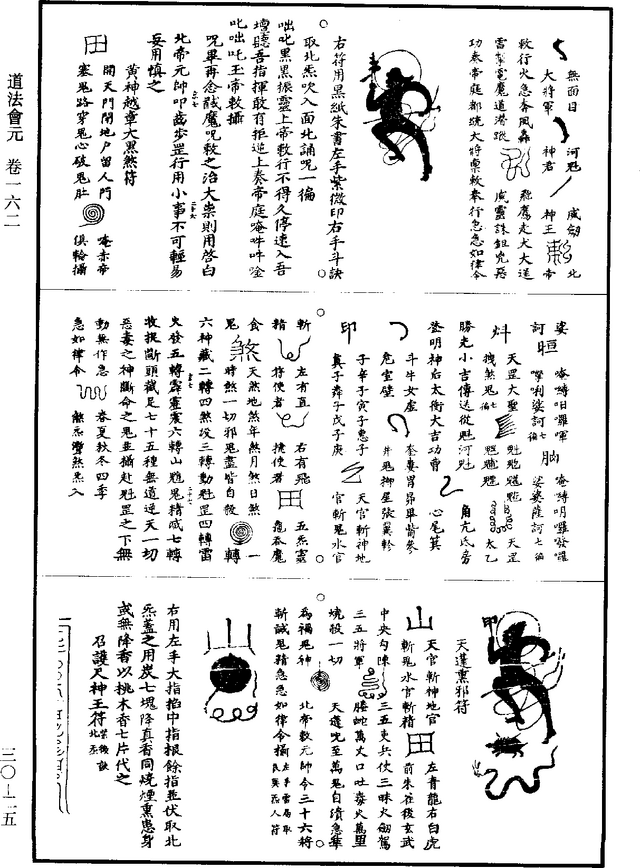 道法會元　卷一六二
三〇—二五
無面目　河魁　威劍　北
大將軍　神君　神王　帝
敕行火急奔風轟
雷掣電魔道潛蹤　飛鷹走犬大逞
威靈誅鉏兇惡
功奏帝庭都統大將稟敕奉行急急如律令
右符用黑紙朱書左手紫微印右手斗訣
取北炁吹入面北誦呪一徧
咄叱黑黑振靈上帝敕行不得久停速入吾
壇聽吾指揮敢有拒逆上奏帝庭唵吽吽唫
叱咄吒玉帝敕攝
呪畢再念馘魔呪敕之治大祟則用啓白
北帝元帥叩齒步罡行用小事不可輕易
妄用慎之
黃神越章大黑煞符
開天門閉地戶留人門　唵赤帝
塞鬼路穿鬼心破鬼肚　俱輪攝
娑　唵嚩呾囉哩　唵嚩明囉發囉
訶　㗶唎娑訶七徧　娑婆薩訶七徧
天罡大聖　魁䰢䰢　天罡
拽煞鬼七徧　太乙
勝光小吉傳送從魁河魁
登明神后太衝大吉功曹　角亢氐房
心尾箕
斗牛女虛　奎婁胃昴畢觜參
危室壁　井鬼柳星張翼軫
子辛子寅子惠子　天官斬神地
真子舜子戊子庚　官斬鬼水官
斬　左有直　右有飛　五炁靈
精　將使者　捷使者　龜吞魔
食　天煞地煞年煞月煞日煞　一
鬼　時煞一切邪鬼盡皆自殺　轉
六神藏二轉四煞沒三轉動魁罡四轉雷
火發五轉霹靂震六轉山魈鬼精滅七轉
收捉斷頭截足七十五種無道逆天一切
惡毒之神斷命之鬼並攝赴魁罡之下無
動無作急　春夏秋冬四季
急如律令　煞炁灣煞炁入
天蓬熏邪符
天官斬神地官　左青龍右白虎
斬鬼水官斬精　前朱雀後玄武
中央勾陳　三五吏兵仗三昧火劍駕
三五將軍　螣蛇萬丈口吐毒火萬里
燒殺一切　天蓬呪至萬鬼自潰急準
為禍鬼神　北帝敕元帥令三十六將
斬馘鬼精急急如律令攝
右用左手大指掐中指根餘指並伏取北
炁蓋之用炭七塊降真香同燒煙熏患身
或無降香以桃木香七片代之
召護尺神王符